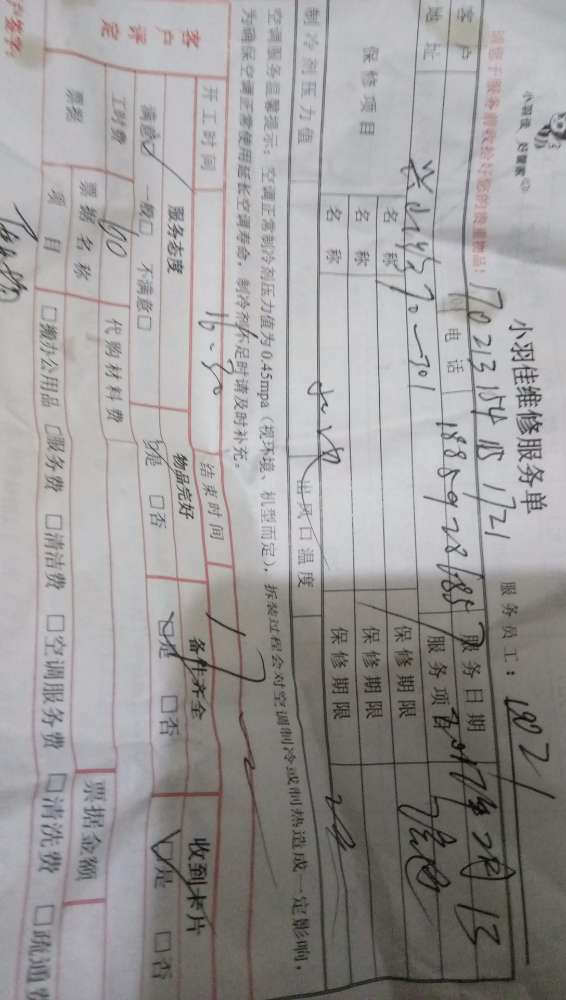 小羽佳 好管家
小羽佳维修服务单
服务员工：1802
请您于服务前收捡好您的贵重物品！
17021315418 1721
客户 电话 服务日期
地址 服务项目
保修项目 名称 保修期限
名称 保修期限
名称 保修期限
制冷剂压力值 出风口温度
空调服务温馨提示：空调正常制冷剂压力值为0.45mpa（视环境、机型而定），拆装过程会对空调制冷或制热造成一定影响，
为确保空调正常使用延长空调寿命，制冷剂不足时请及时补充。
开工时间 16:30 结束时间 17
客户评定 服务态度 物品完好 备件齐全 收到卡片
满意☑ 一般□ 不满意□ ☑是 □否 ☑是 □否 ☑是 □否
工时费 90 代购材料费
票据 票据名称 票据金额
项目 □搬办公用品 □服务费 □清洁费 □空调服务费 □清洗费 □疏通
户签字：